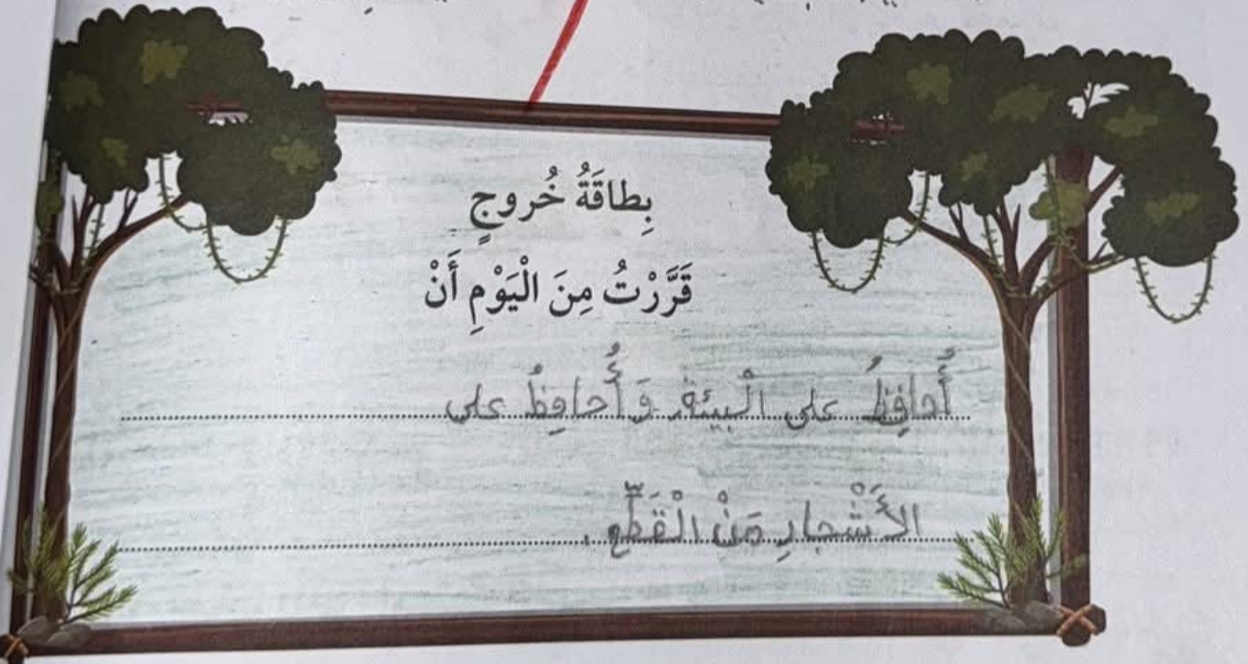 بِطاقَةُ خُروجٍ
قَرَّرْتُ مِنَ الْيَوْمِ أَنْ
أُحافِظُ على الْبيئة وَ أُحافِظُ على
الأَشْجارِ مَنْ الْقَطّعِ .